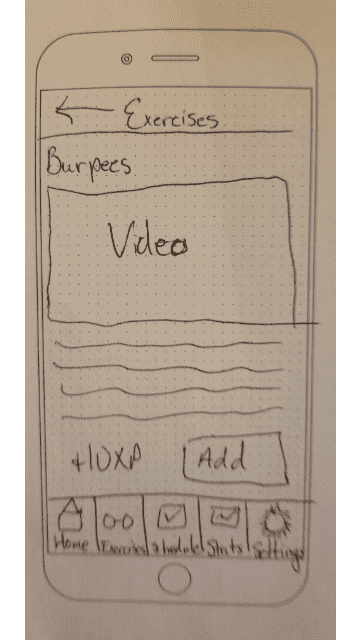 Exercises
Burpees
Video
+10XP
Add
Home Exercises Schedule Stats Settings